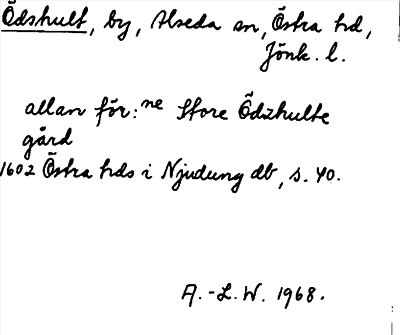 Ödshult, by, Alseda sn, Östra hd,
Jönk. l.
allan för:ne Store Ödzhulte
gård
1602 Östra hds i Njudung db, s. 40.
A.-L.W. 1968.